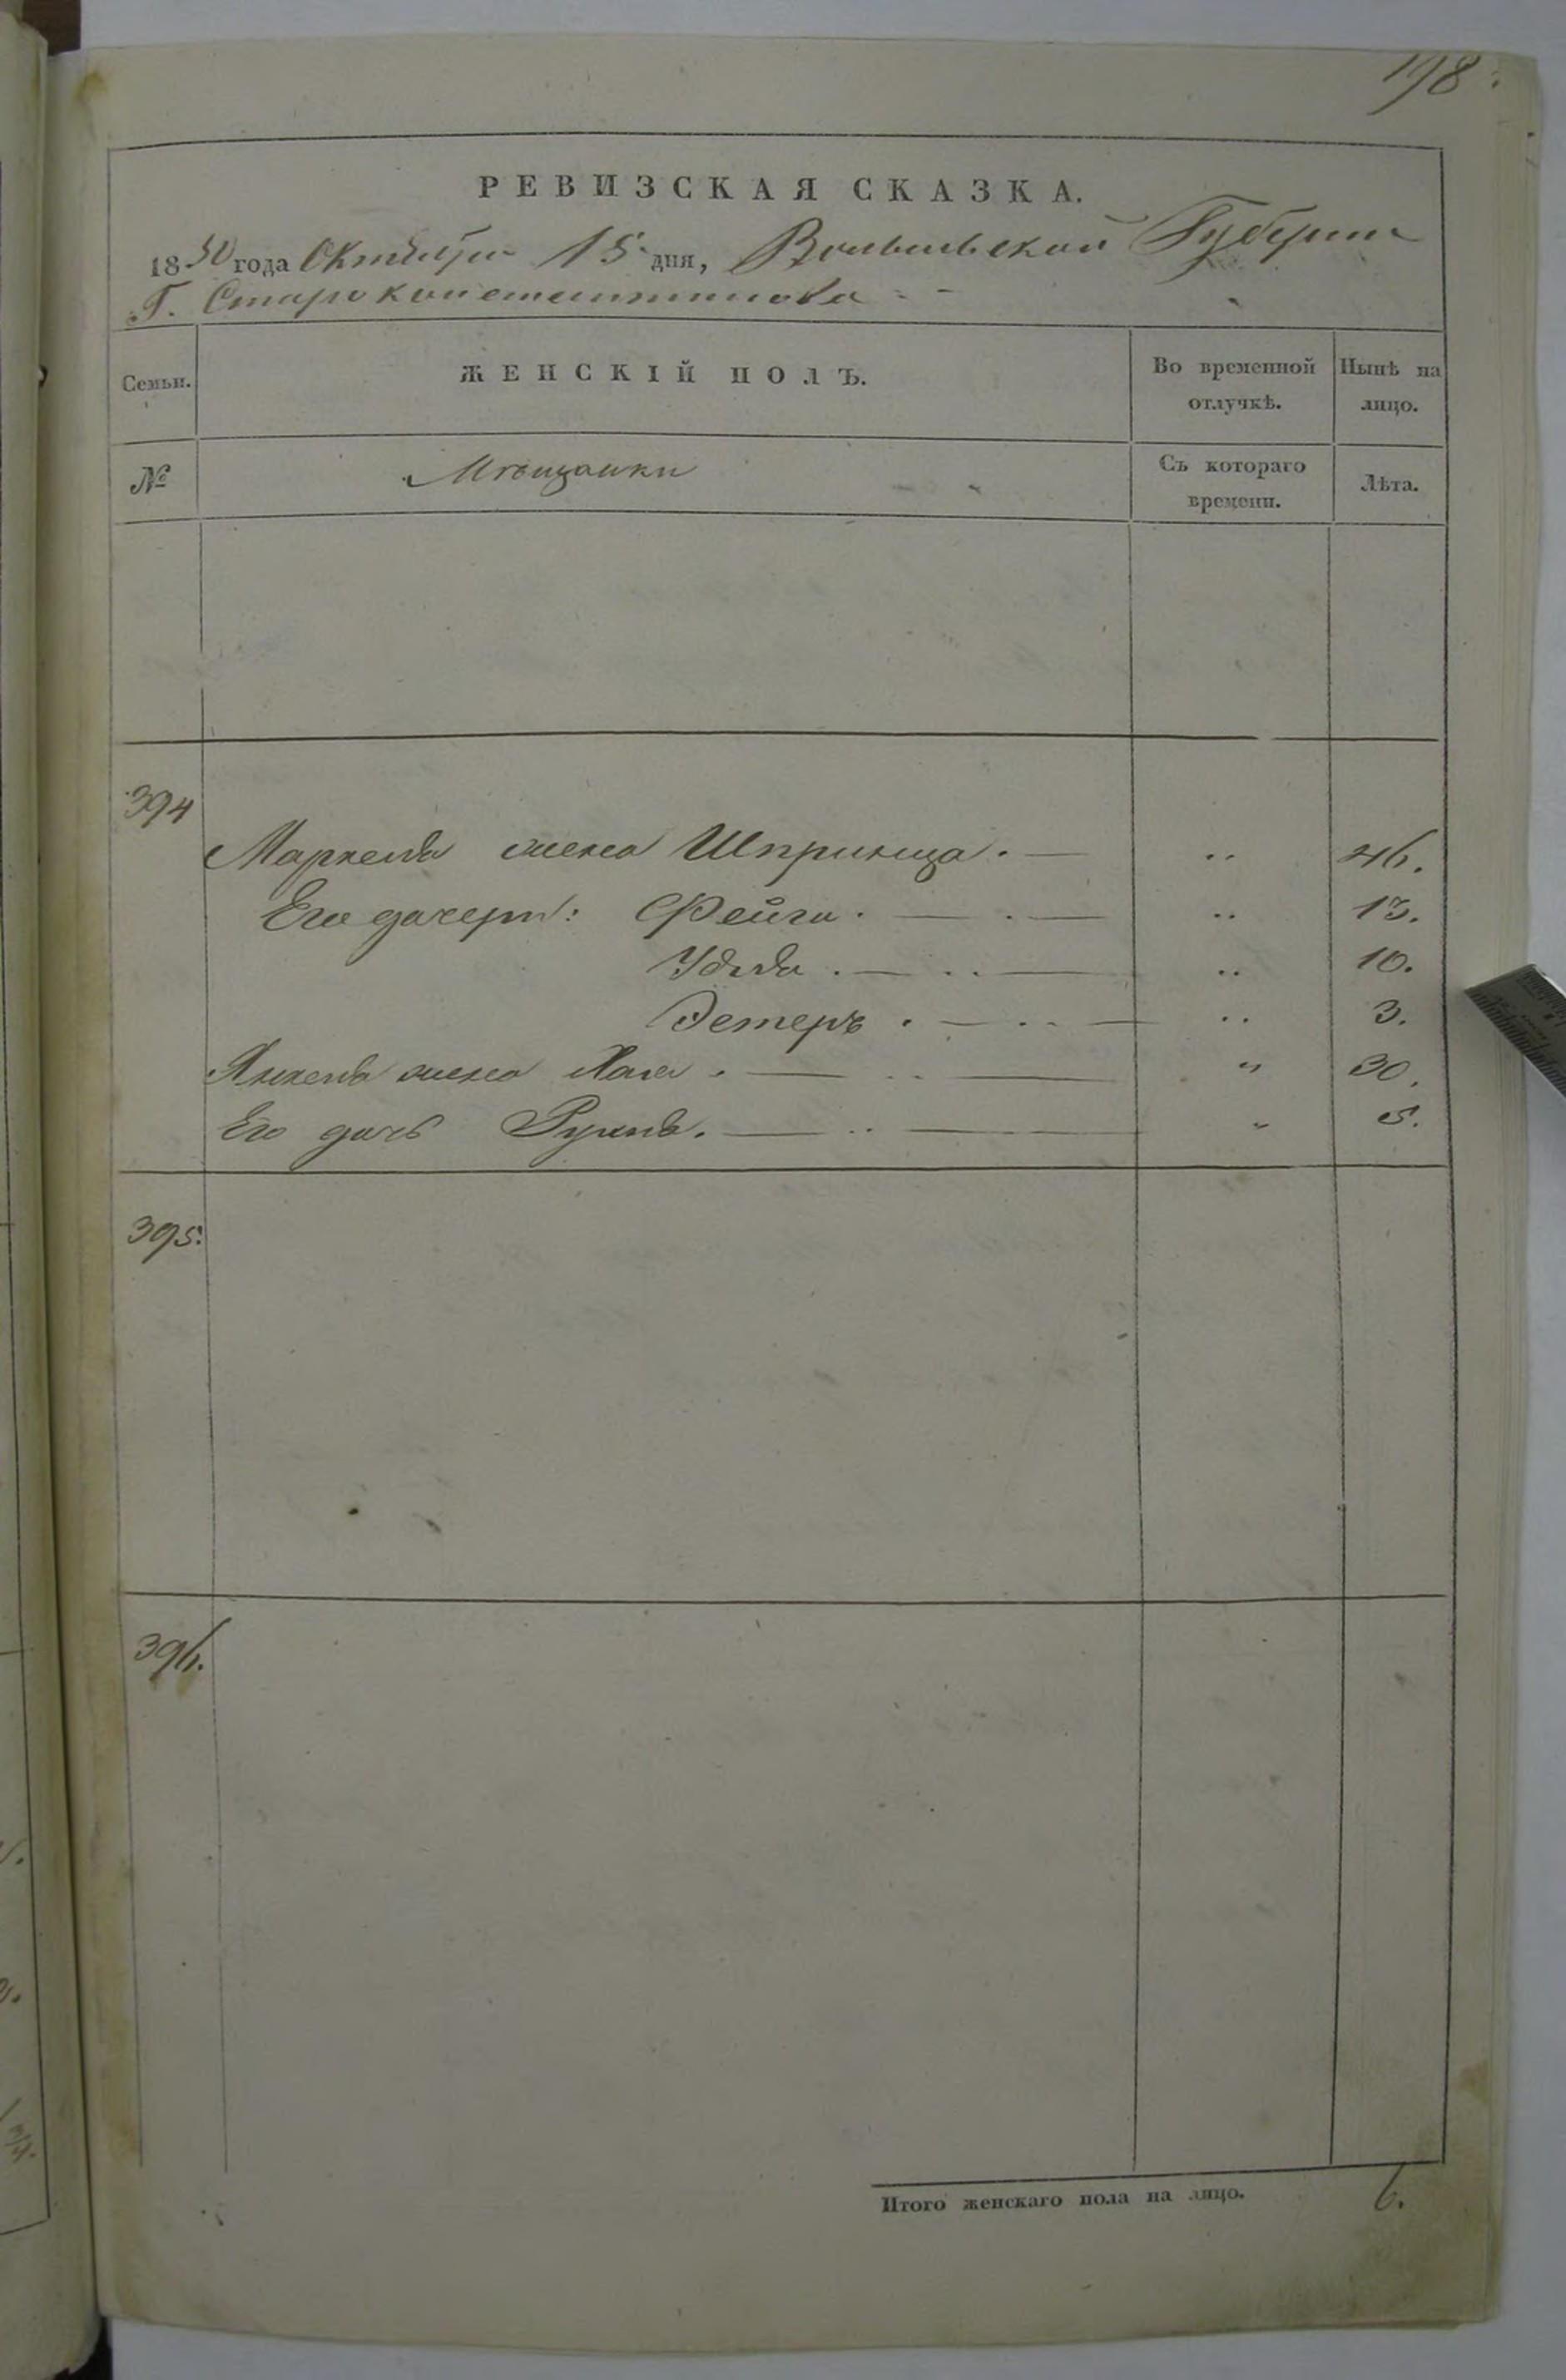 198.
РЕВИЗСКАЯ СКАЗКА.
1850 года Октября 15 дня, Волынской Губернии
Г. Староконстантинова
Семьи.
ЖЕНСКІЙ ПОЛЪ.
Во временной отлучкѣ.
Нынѣ на лицо.
№
Мѣщанки
Съ котораго времени.
Лѣта.
394
жена Шпринца. 46.
Его дочери: Фейга. 13.
10.
Эстеръ. 3.
Янкеля жена Хая. 30.
Его дочь 5.
395.
396.
Итого женскаго пола на лицо. 6.